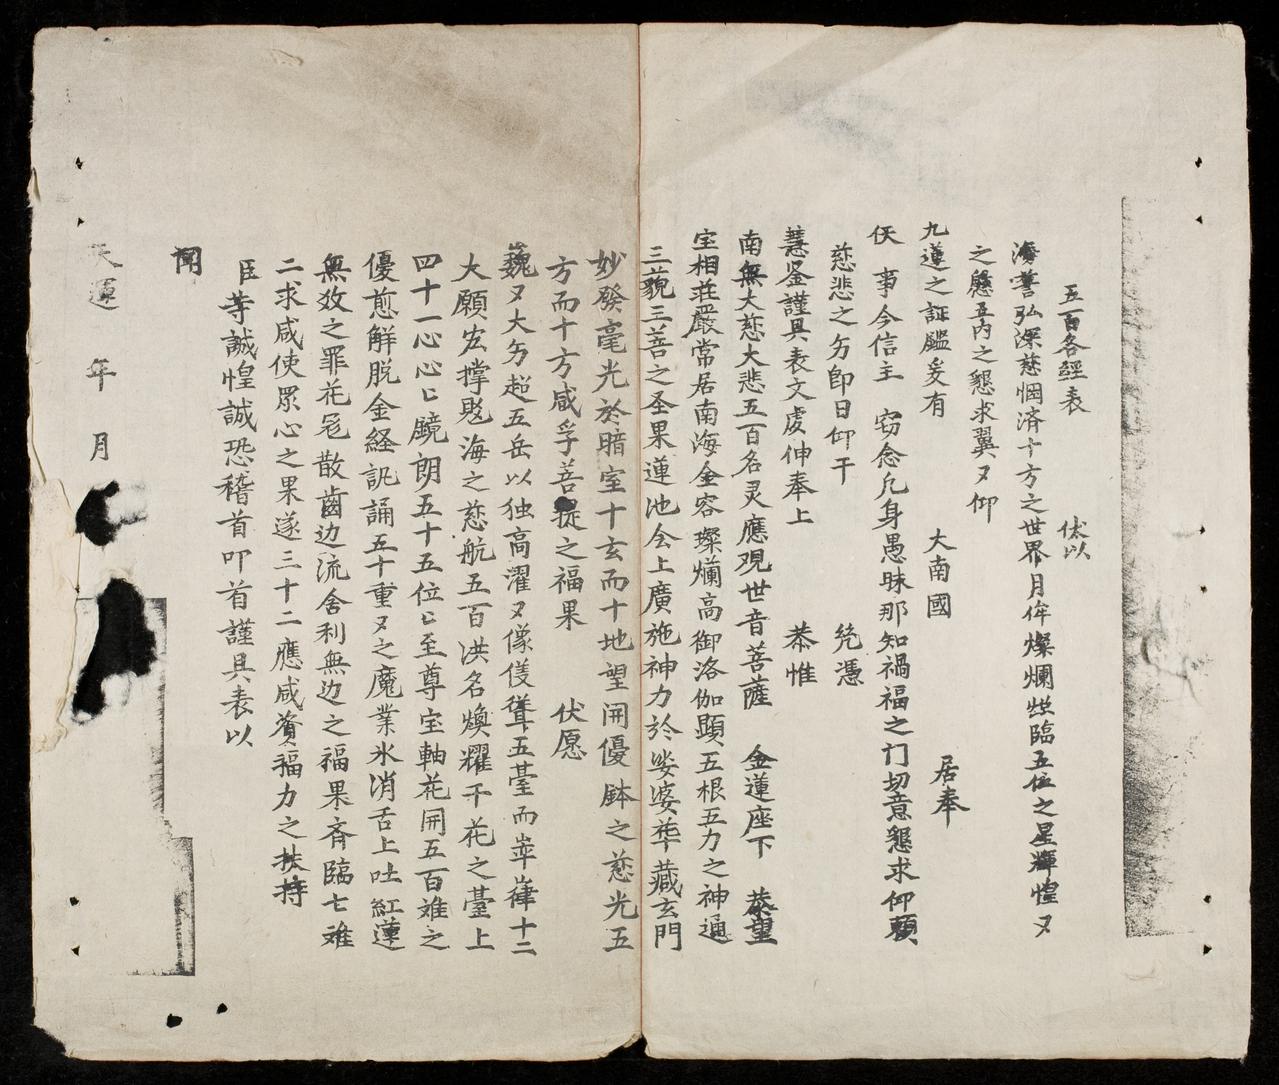 五百名經表 伏以
海誓弘深慈憫済十方之世界月侔燦爛照臨五位之星輝惶又
之懸五內之懇求翼又仰
九蓮之証鑑爰有 大南國 居奉
仸 事今信主 窃念凢身愚昧那知禍福之门切意懇求仰賴
慈悲之力即日仰干 統憑
慧鉴謹具表文虔伸奉上 恭惟
南無大慈大悲五百名灵應覌世音菩薩 金蓮座下 恭望
宝相荘嚴常居南海金容璨爛高御洛伽顕五根五力之神通
三藐三菩之圣果蓮池会上廣施神力於娑婆華藏玄門
妙發毫光於暗室十玄而十地望開優鉢之慈光五
方而十方咸孚菩提之福果 伏愿
巍又大力超五岳以独高濯又僚𠊎聳五䑓而崒嵂十二
大願宏撑苦海之慈航五百洪名煥耀千花之䑓上
四十一心心匕鏡朗五十五位匕至尊宝軸花開五百难之
優愆解脱金経諷誦五十重又之魔業氷消舌上吐紅蓮
無效之罪花冤散齒边流舍利無边之福果斉臨七难
二求咸使眾心之果遂三十二應咸資福力之扶持
臣等誠惶誠恐稽首叩首謹具表以
聞
天運 年 月